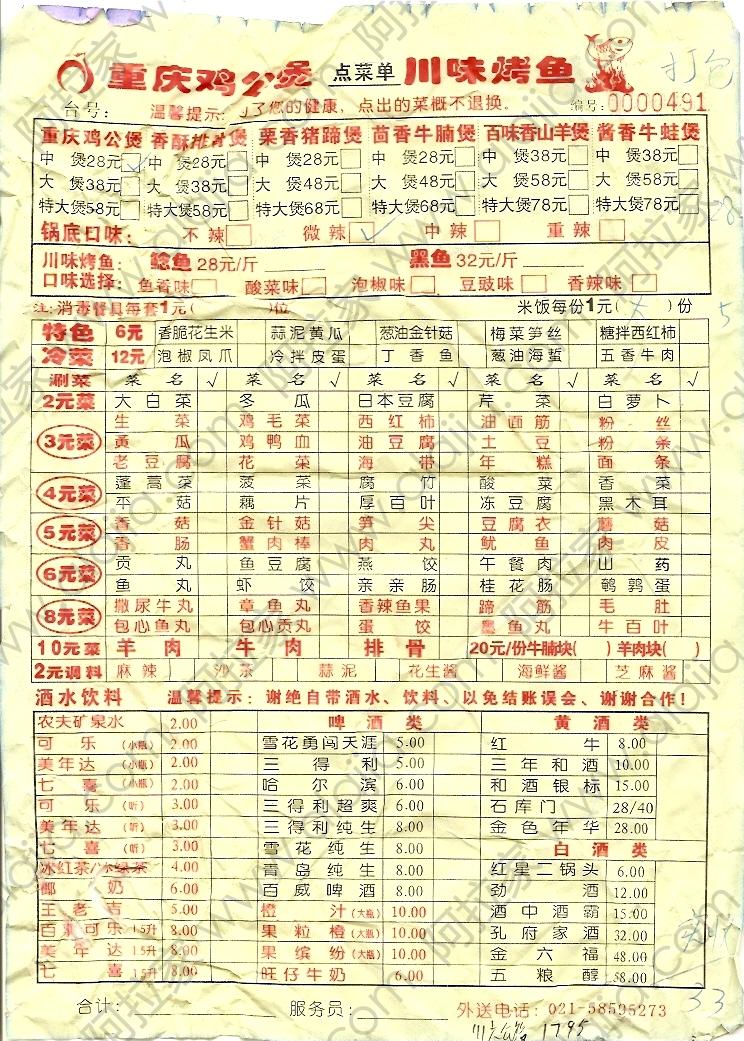 重庆鸡公煲 点菜单 川味烤鱼 打包
台号: 温馨提示: 为了您的健康、点出的菜概不退换。 编号: 0000491
重庆鸡公煲 香酥排骨煲 栗香猪蹄煲 茴香牛腩煲 百味香山羊煲 酱香牛蛙煲
中 煲28元 中 煲28元 中 煲28元 中 煲28元 中 煲38元 中 煲38元
大 煲38元 大 煲38元 大 煲48元 大 煲48元 大 煲58元 大 煲58元
特大煲58元 特大煲58元 特大煲68元 特大煲68元 特大煲78元 特大煲78元
锅底口味: 不辣 微辣 中辣 重辣
川味烤鱼: 鲶鱼 28元/斤 黑鱼 32元/斤
口味选择: 鱼香味 酸菜味 泡椒味 豆豉味 香辣味
注: 消毒餐具每套1元( )位 米饭每份1元( )份 5
特色 6元 香脆花生米 蒜泥黄瓜 葱油金针菇 梅菜笋丝 糖拌西红柿
冷菜 12元 泡椒凤爪 冷拌皮蛋 丁香鱼 葱油海蜇 五香牛肉
涮菜 菜名 √ 菜名 √ 菜名 √ 菜名 √ 菜名 √
2元菜 大白菜 冬瓜 日本豆腐 芹菜 白萝卜
3元菜 生菜 鸡毛菜 西红柿 油面筋 粉丝
黄瓜 鸡鸭血 油豆腐 土豆 粉条
老豆腐 花菜 海带 年糕 面条
4元菜 蓬蒿菜 菠菜 腐竹 酸菜 香菜
平菇 藕片 厚百叶 冻豆腐 黑木耳
5元菜 香菇 金针菇 笋尖 豆腐衣 蘑菇
香肠 蟹肉棒 肉丸 鱿鱼 肉皮
6元菜 贡丸 鱼豆腐 燕饺 午餐肉 山药
鱼丸 虾饺 亲亲肠 桂花肠 鹌鹑蛋
8元菜 撒尿牛丸 章鱼丸 香辣鱼果 蹄筋 毛肚
包心鱼丸 包心贡丸 蛋饺 墨鱼丸 牛百叶
10元菜 羊肉 牛肉 排骨 20元/份牛腩块( )羊肉块( )
2元调料 麻辣 沙茶 蒜泥 花生酱 海鲜酱 芝麻酱
酒水饮料 温馨提示: 谢绝自带酒水、饮料、以免结账误会、谢谢合作!
农夫矿泉水 2.00 啤酒类 黄酒类
可乐(小瓶) 2.00 雪花勇闯天涯 5.00 红牛 8.00
美年达(小瓶) 2.00 三得利 5.00 三年和酒 10.00
七喜(小瓶) 2.00 哈尔滨 6.00 和酒银标 15.00
可乐(听) 3.00 三得利超爽 6.00 石库门 28/40
美年达(听) 3.00 三得利纯生 8.00 金色年华 28.00
七喜(听) 3.00 雪花纯生 8.00 白酒类
冰红茶/冰绿茶 4.00 青岛纯生 8.00 红星二锅头 6.00
椰奶 6.00 百威啤酒 8.00 劲酒 12.00
王老吉 5.00 橙汁(大瓶) 10.00 酒中酒霸 15.00
百事可乐 1.5升 8.00 果粒橙(大瓶) 10.00 孔府家酒 32.00
美年达 1.5升 8.00 果缤纷(大瓶) 10.00 金六福 48.00
七喜 1.5升 8.00 旺仔牛奶 6.00 五粮醇 58.00
33
合计: 服务员: 外送电话: 021-58595273
1795
阿拉家 www.alajia.com